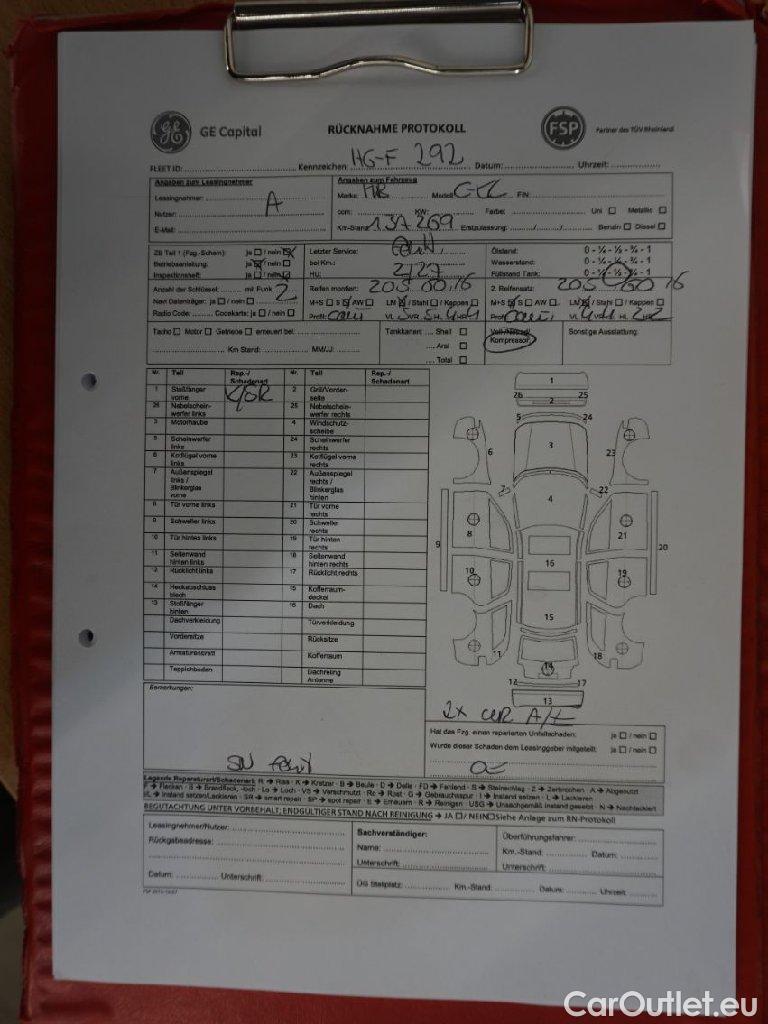 GE Capital
RÜCKNAHME PROTOKOLL
FSP
Partner des TÜV Rheinland
FLEET ID: Kennzeichen: HG-F 292 Datum: Uhrzeit:
Angaben zum Leasingnehmer
Leasingnehmer: A
Nutzer:
E-Mail:
Angaben zum Fahrzeug
Marke: Modell: FIN:
ccm: KW: Farbe: Uni Metallic
Km-Stand: 137269 Erstzulassung: Benzin Diesel
ZB Teil 1 (Fzg.-Schein): ja / nein
Betriebsanleitung: ja / nein
Inspektionsheft: ja / nein
Letzter Service: Fehlt
bei Km.:
HU: 2/27
Ölstand: 0 - ¼ - ½ - ¾ - 1
Wasserstand: 0 - ¼ - ½ - ¾ - 1
Füllstand Tank: 0 - ¼ - ½ - ¾ - 1
Anzahl der Schlüssel: mit Funk 2
Navi Datenträger: ja / nein
Radio Code: Cocekarte: ja / nein
Reifen montiert: 205 60 16
M+S S AW LM / Stahl / Kappen
Profil:
2. Reifensatz: 205 60 16
M+S S AW LM / Stahl / Kappen
Profil:
Tacho Motor Getriebe erneuert bei:
Km Stand: MM/JJ:
Tankkarten: Shell
Aral
Total
Kompressor
Sonstige Ausstattung:
Nr. Teil Rep.-/ Schadenart Nr. Teil Rep.-/ Schadenart
1 Stoßfänger vorne 2 Grill/Vorderseite
26 Nebelscheinwerfer links 25 Nebelscheinwerfer rechts
3 Motorhaube 4 Windschutzscheibe
5 Scheinwerfer links 24 Scheinwerfer rechts
6 Kotflügel vorne links 23 Kotflügel vorne rechts
7 Außenspiegel links / Blinkerglas vorne 22 Außenspiegel rechts / Blinkerglas hinten
8 Tür vorne links 21 Tür vorne rechts
9 Schweller links 20 Schweller rechts
10 Tür hintes links 19 Tür hinten rechts
11 Seitenwand hinten links 18 Seitenwand hinten rechts
12 Rücklicht links 17 Rücklicht rechts
14 Heckabschlussblech 15 Kofferraumdeckel
13 Stoßfänger hinten 16 Dach
Dachverkleidung Türverkleidung
Vordersitze Rücksitze
Armaturenbrett Kofferraum
Teppichboden Dachreling Antenne
1
26 25
2
5 24
3
6 23
7 22
4
8 21
9 20
16
10 19
15
11 18
14
12 17
13
Bemerkungen:
SN Fehlt
2x
Hat das Fzg. einen reparierten Unfallschaden: ja / nein
Wurde dieser Schaden dem Leasinggeber mitgeteilt: ja / nein
Legende Reparaturart/Schadenart: R → Riss - K → Kratzer - B → Beule - D → Delle - FD → Fehlend - S → Steinschlag - Z → Zerbrochen - A → Abgenutzt
F → Flecken - B → Brandfleck, -loch - Lo → Loch - VS → Verschmutzt - Rc → Rost - G → Gebrauchsspur - I → Instand setzen - L → Lackieren
I/L → Instand setzen/Lackieren - SR → smart repair - SP → spot repair - E → Erneuern - R → Reinigen - USG → Unsachgemäß instand gesetzt - N → Nachlackiert
BEGUTACHTUNG UNTER VORBEHALT; ENDGÜLTIGER STAND NACH REINIGUNG → JA / NEIN Siehe Anlage zum RN-Protokoll
Leasingnehmer/Nutzer:
Rückgabeadresse:
Datum: Unterschrift:
Sachverständiger:
Name:
Unterschrift:
Überführungsfahrer:
Km.-Stand: Datum:
Unterschrift:
ÜG Stellplatz: Km.-Stand: Datum: Uhrzeit:
CarOutlet.eu